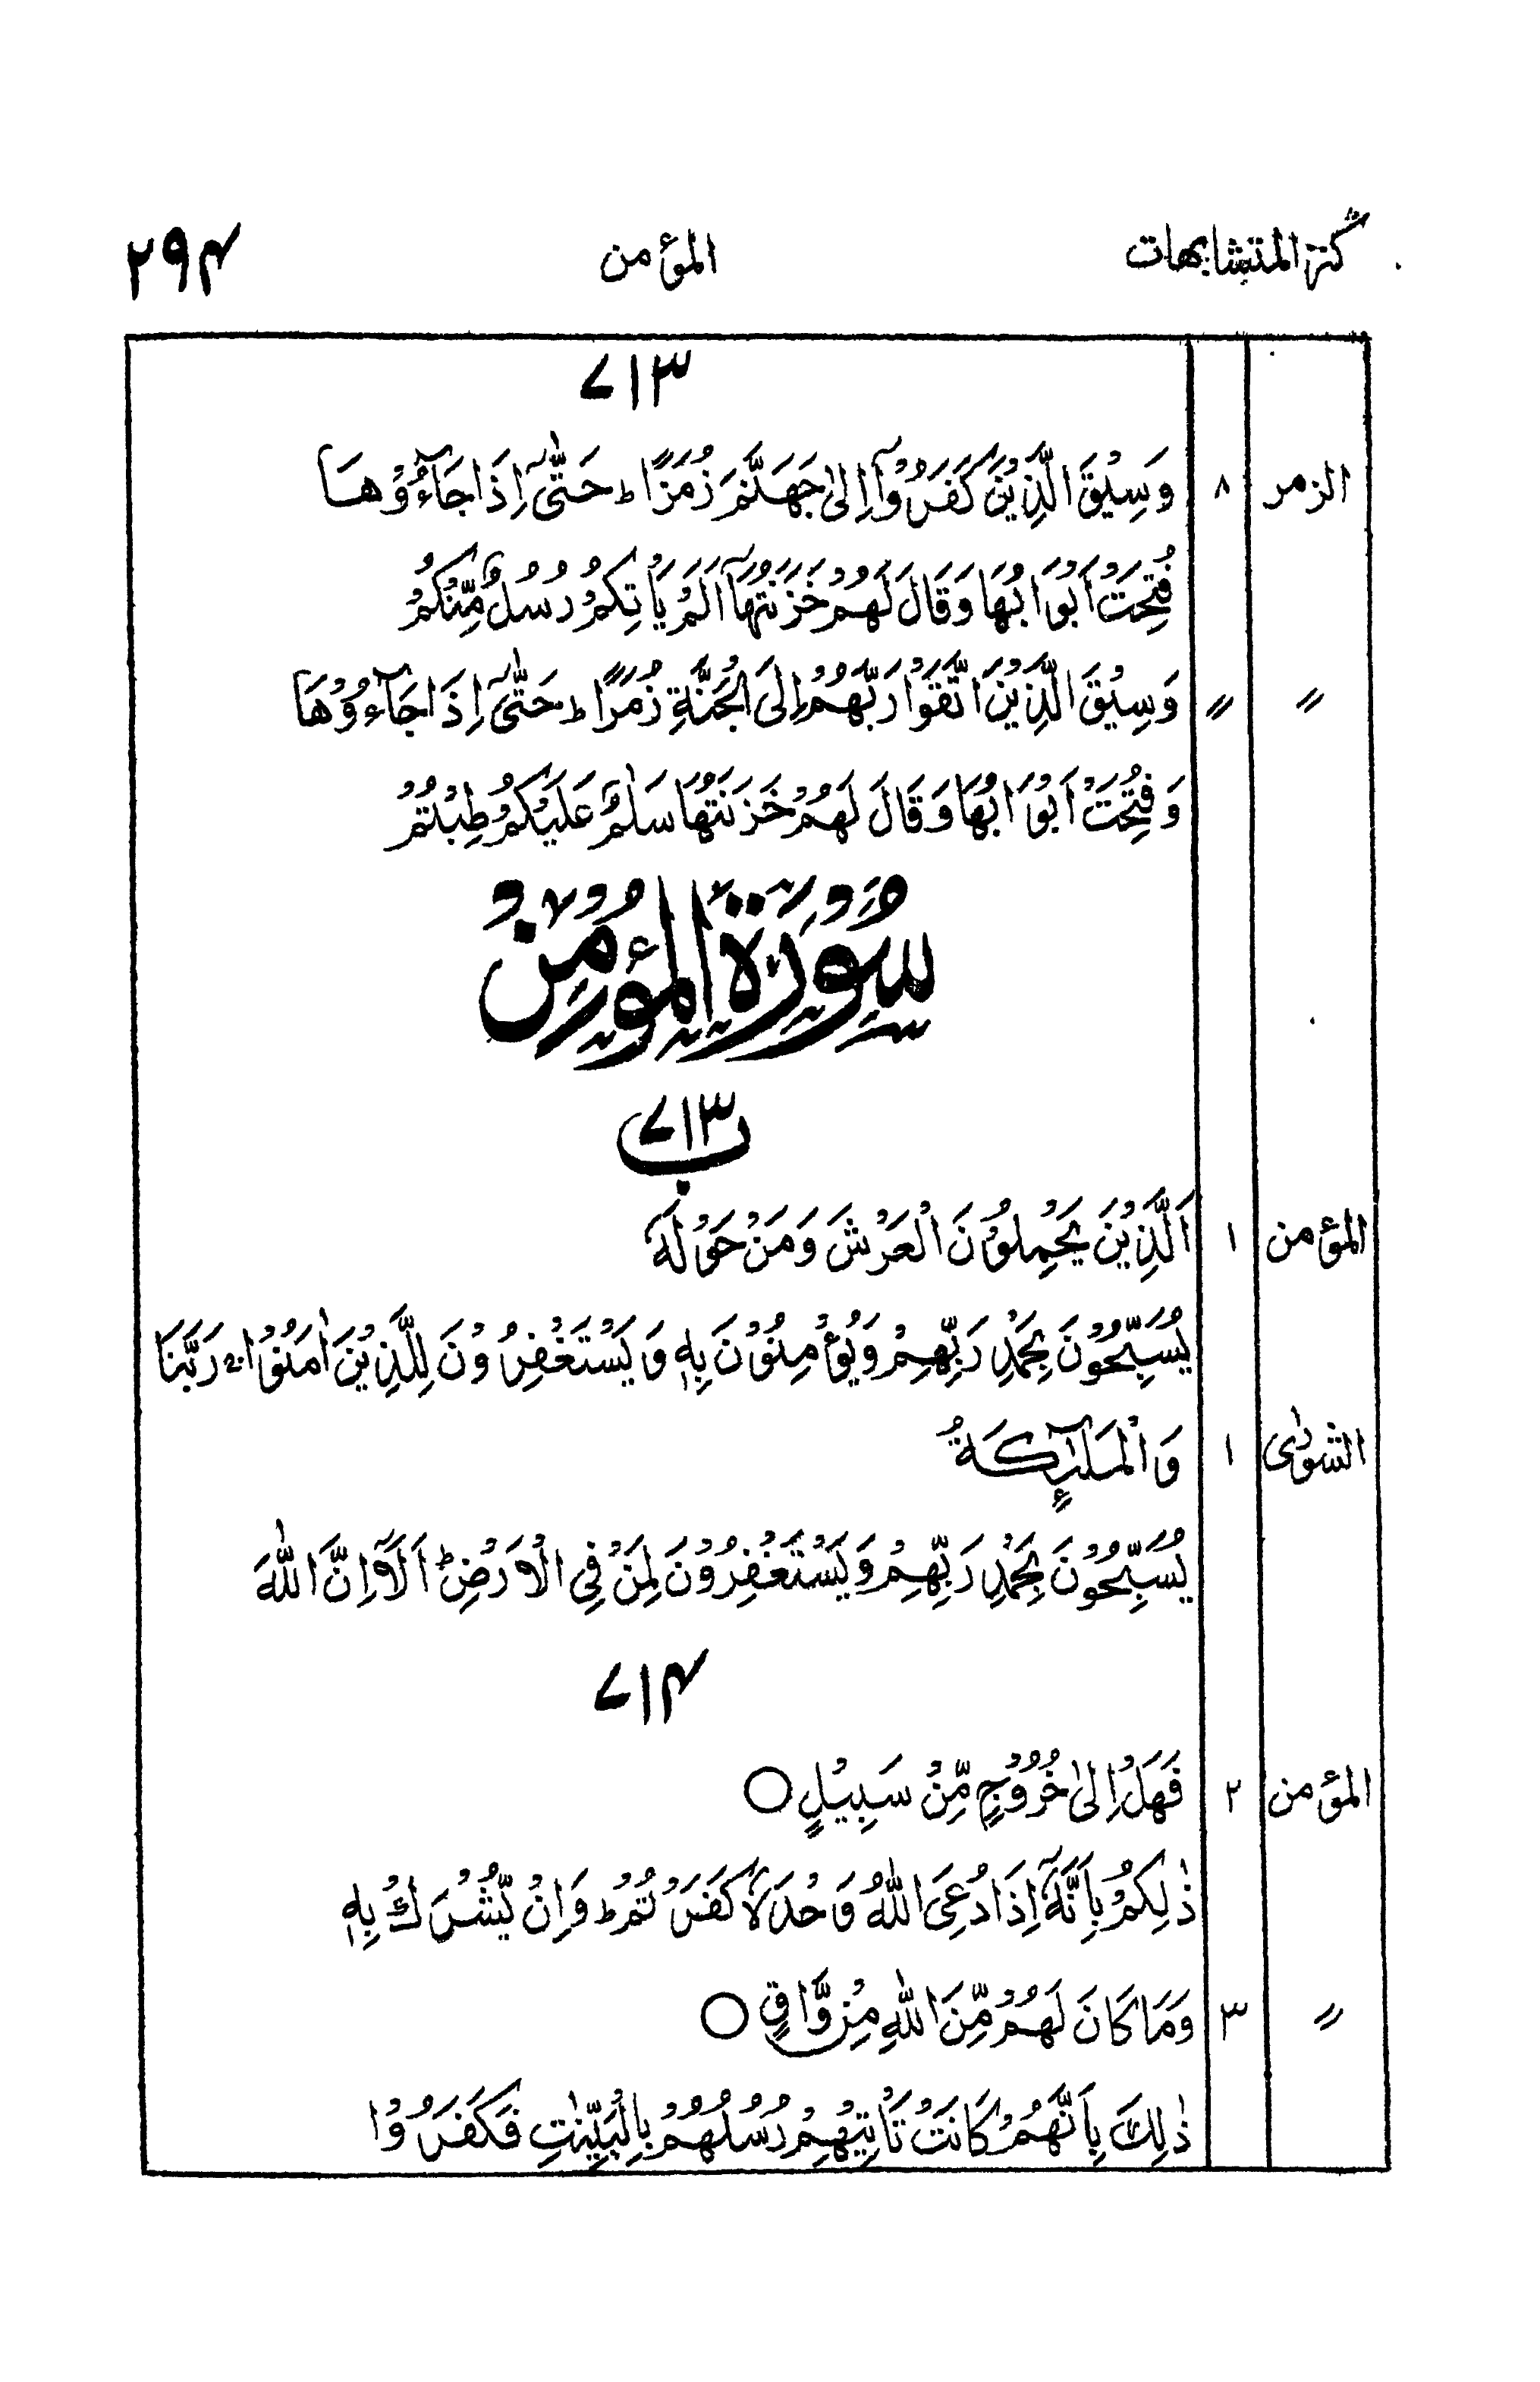 كنز المتشابهات المؤمن ۲۹۴
۷۱۳
الزمر ۸ وَسِيْقَ الَّذِيْنَ كَفَرُوْٓا اِلٰى جَهَنَّمَ زُمَرًا ؕ حَتّٰٓى اِذَا جَآءُوْهَا
فُتِحَتْ اَبْوَابُهَا وَقَالَ لَهُمْ خَزَنَتُهَآ اَلَمْ يَاْتِكُمْ رُسُلٌ مِّنْكُمْ
〃 〃 وَسِيْقَ الَّذِيْنَ اتَّقَوْا رَبَّهُمْ اِلَى الْجَنَّةِ زُمَرًا ؕ حَتّٰٓى اِذَا جَآءُوْهَا
وَفُتِحَتْ اَبْوَابُهَا وَقَالَ لَهُمْ خَزَنَتُهَا سَلٰمٌ عَلَيْكُمْ طِبْتُمْ
سُوْرَةُ الْمُؤْمِنْ
۷۱۳ ب
المؤمن ۱ اَلَّذِيْنَ يَحْمِلُوْنَ الْعَرْشَ وَمَنْ حَوْلَهٗ
يُسَبِّحُوْنَ بِحَمْدِ رَبِّهِمْ وَيُؤْمِنُوْنَ بِهٖ وَيَسْتَغْفِرُوْنَ لِلَّذِيْنَ اٰمَنُوْا ۚ رَبَّنَا
الشورٰى ۱ وَالْمَلٰٓئِكَةُ
يُسَبِّحُوْنَ بِحَمْدِ رَبِّهِمْ وَيَسْتَغْفِرُوْنَ لِمَنْ فِى الْاَرْضِ ؕ اَلَآ اِنَّ اللّٰهَ
۷۱۴
المؤمن ۲ فَهَلْ اِلٰى خُرُوْجٍ مِّنْ سَبِيْلٍ ○
ذٰلِكُمْ بِاَنَّهٗٓ اِذَا دُعِىَ اللّٰهُ وَحْدَهٗ كَفَرْتُمْ ؕ وَاِنْ يُّشْرَكْ بِهٖ
〃 ۳ وَمَا كَانَ لَهُمْ مِّنَ اللّٰهِ مِنْ وَّاقٍ ○
ذٰلِكَ بِاَنَّهُمْ كَانَتْ تَّاْتِيْهِمْ رُسُلُهُمْ بِالْبَيِّنٰتِ فَكَفَرُوْا